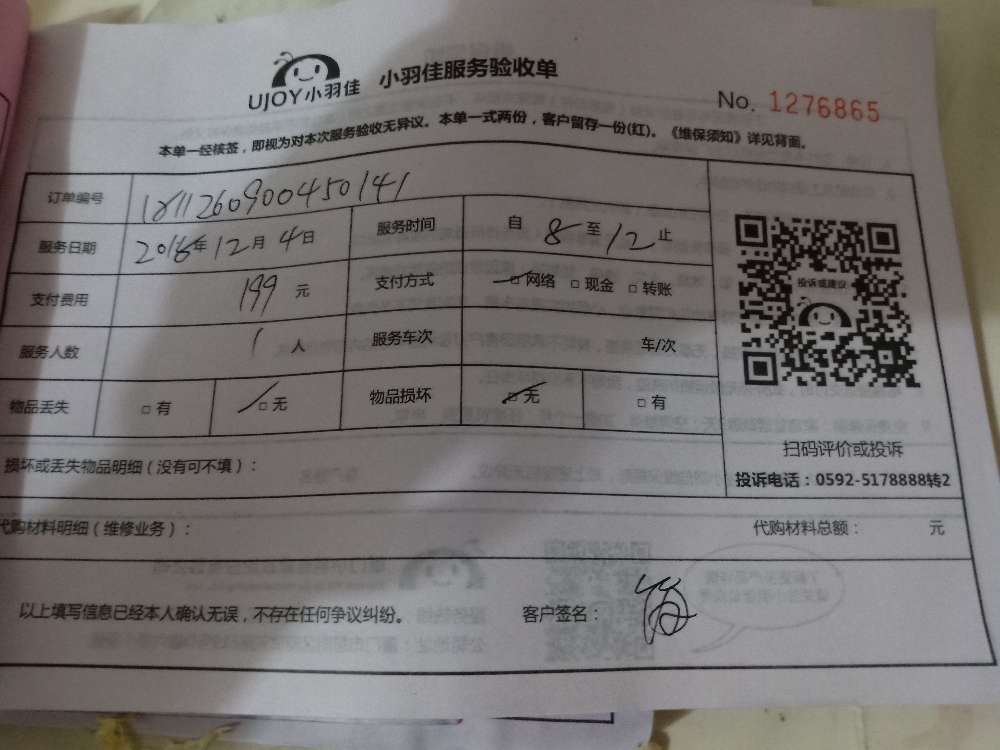 UJOY小羽佳 小羽佳服务验收单
No. 1276865
本单一经核签，即视为对本次服务验收无异议。本单一式两份，客户留存一份(红)。《维保须知》详见背面。
订单编号 1811260900450141
服务日期 2018年12月4日 服务时间 自8至12止
支付费用 199元 支付方式 □网络 □现金 □转账
服务人数 1人 服务车次 车/次
物品丢失 □有 □无 物品损坏 □无 □有
投诉或建议
扫码评价或投诉
投诉电话：0592-5178888转2
损坏或丢失物品明细（没有可不填）：
代购材料明细（维修业务）： 代购材料总额： 元
以上填写信息已经本人确认无误，不存在任何争议纠纷。 客户签名：